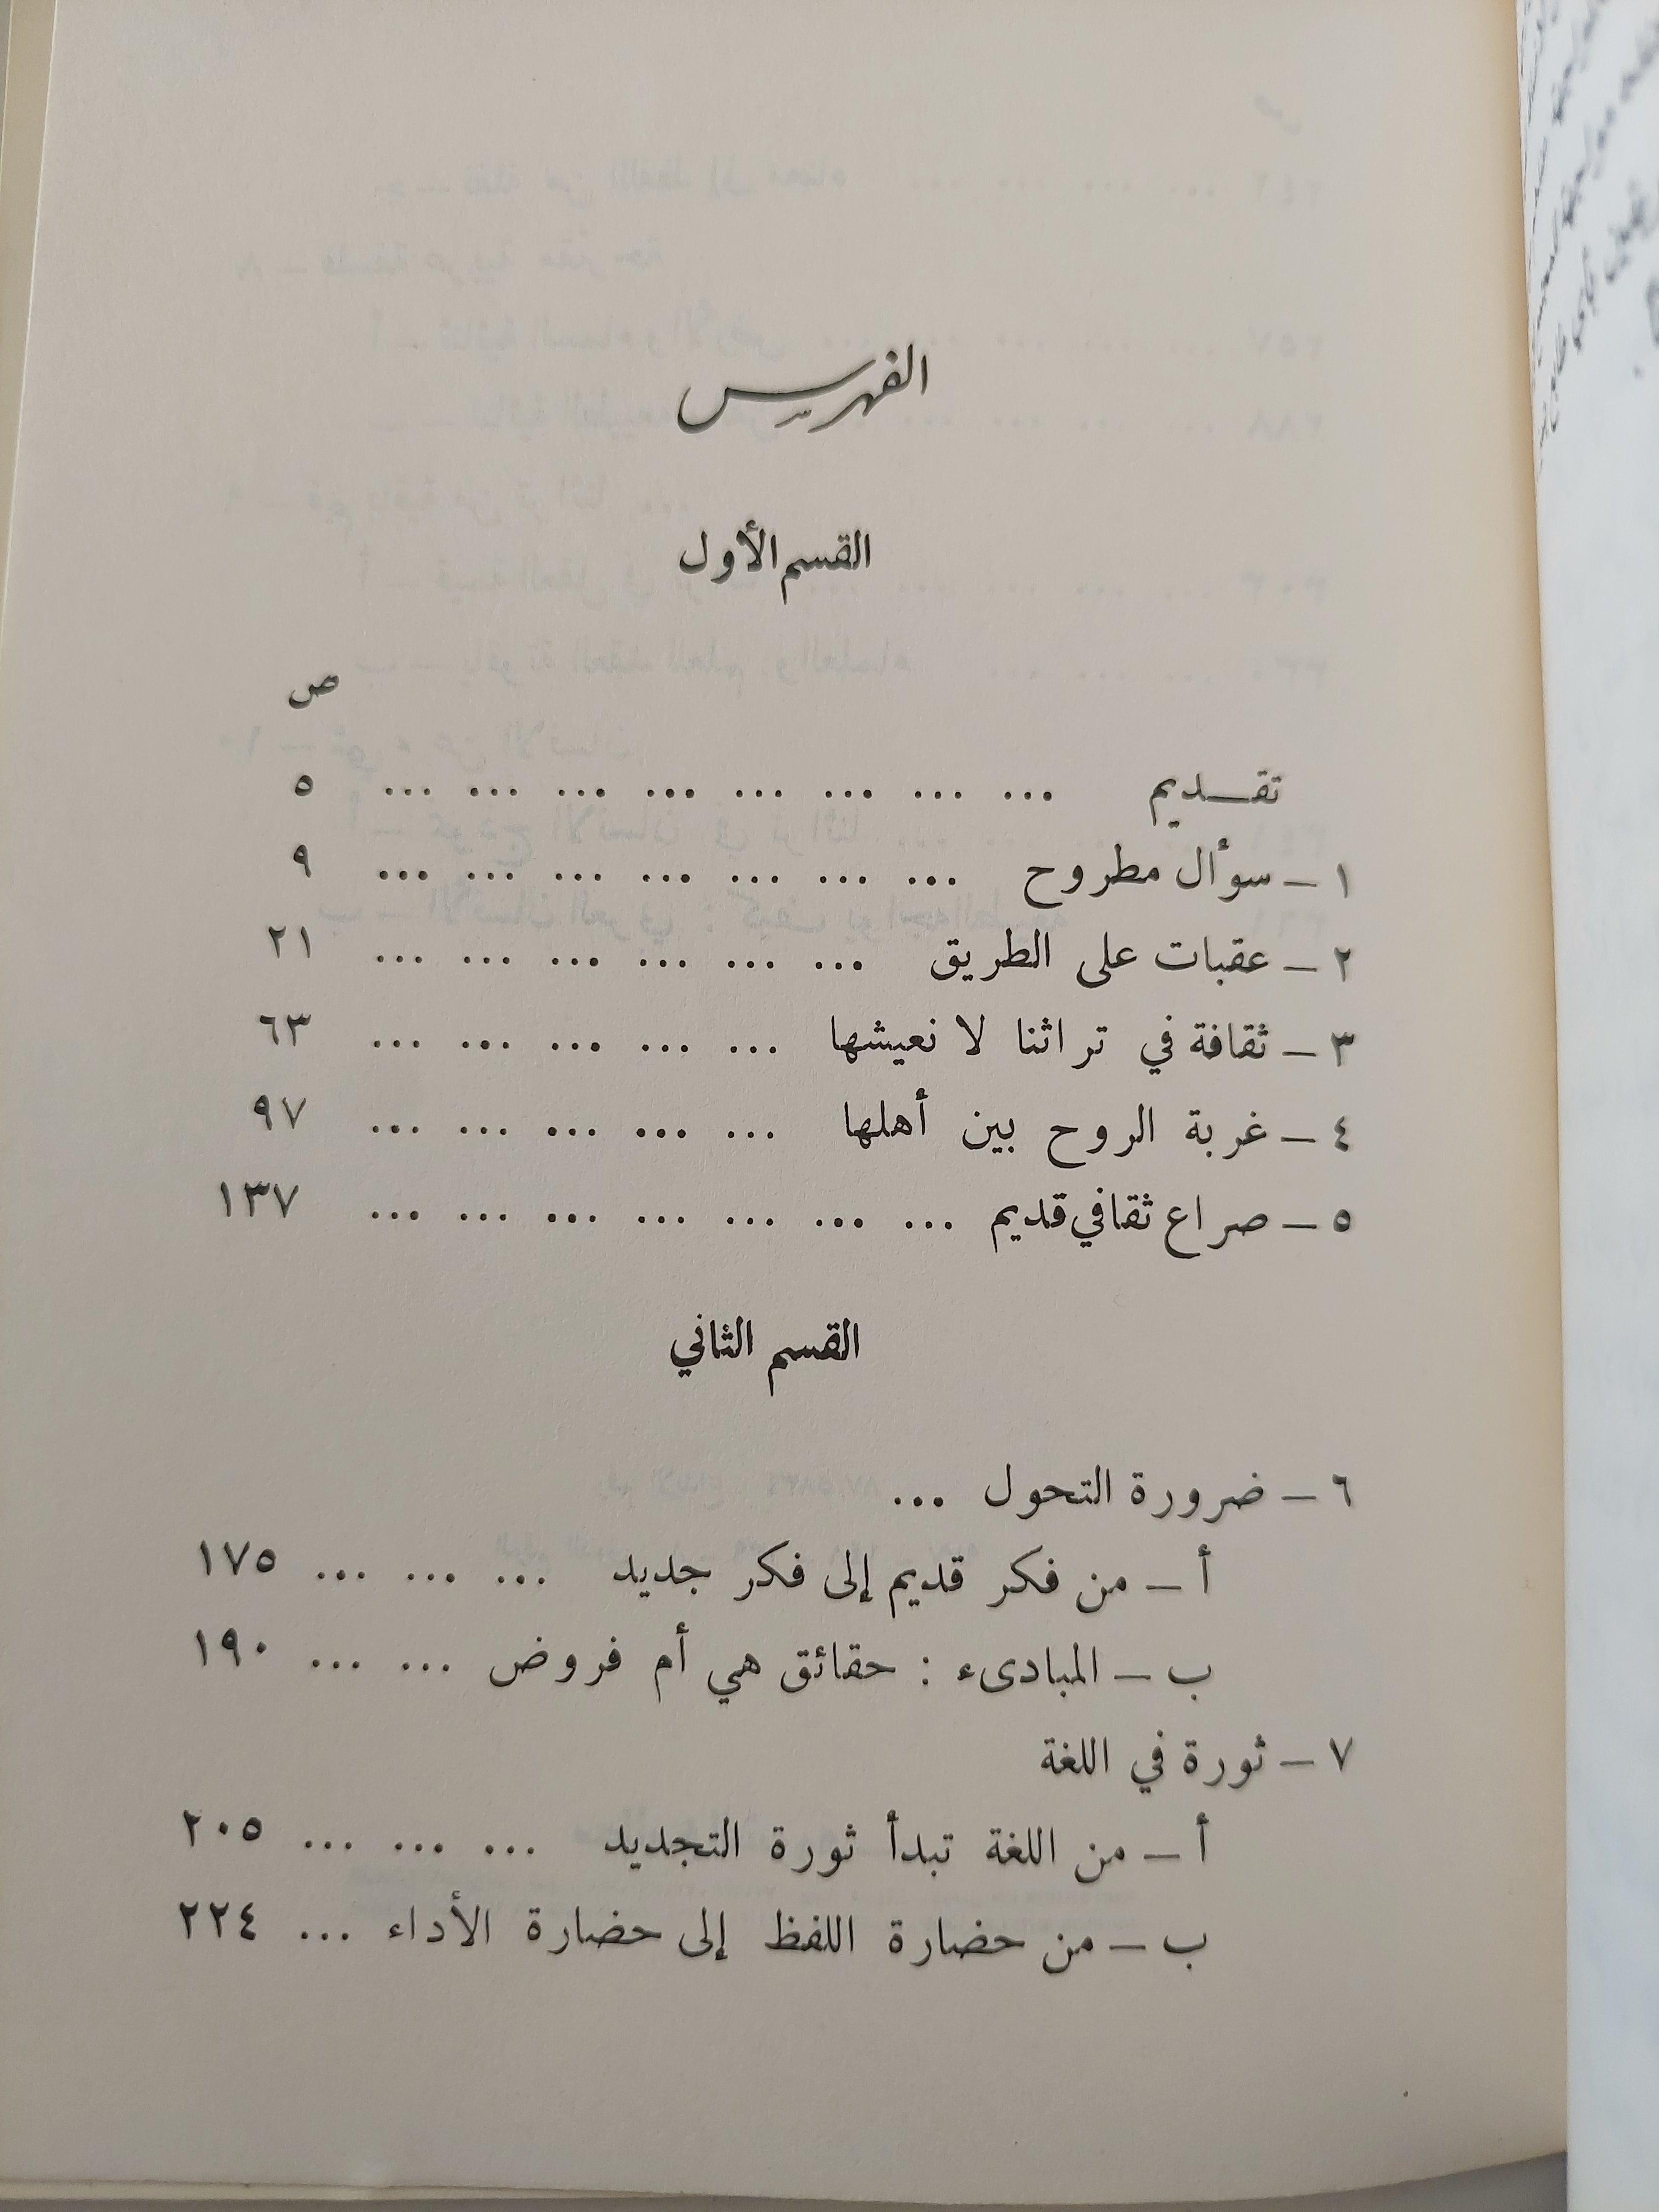 الفهرس
القسم الأول
ص
تقـــديم ... ... ... ... ... ... ... ... ٥
١ – سوأل مطروح ... ... ... ... ... ... ... ٩
٢ – عقبات على الطريق ... ... ... ... ... ... ٢١
٣ – ثقافة في تراثنا لا نعيشها ... ... ... ... ... ٦٣
٤ – غربة الروح بين أهلها ... ... ... ... ... ٩٧
٥ – صراع ثقافي قديم ... ... ... ... ... ... ... ١٣٧
القسم الثاني
٦ – ضرورة التحول ...
أ – من فكر قديم إلى فكر جديد ... ... ... ١٧٥
ب – المبادىء : حقائق هي أم فروض ... ... ١٩٠
٧ – ثورة في اللغة
أ – من اللغة تبدأ ثورة التجديد ... ... ... ٢٠٥
ب – من حضارة اللفظ إلى حضارة الأداء ... ٢٢٤